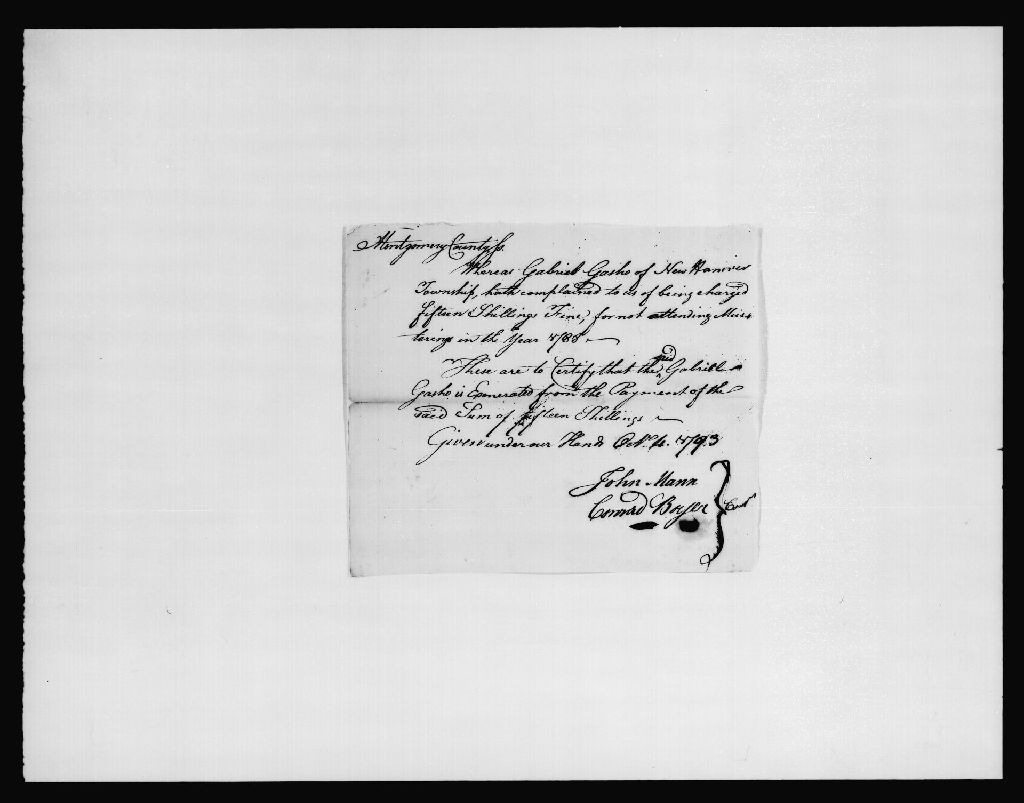 Montgomery County ss.
Whereas Gabriel Gasho of New Hanover
Township, hath complained to us of being charged
fifteen Shillings Fine, for not attending Mus-
terings in the Year 1788
These are to Certify that the said Gabriel
Gasho is Exonerated from the Payment of the
said Sum of fifteen Shillings
Given under our Hands Octr. 4. 1793
John Mann
Conrad Boyer